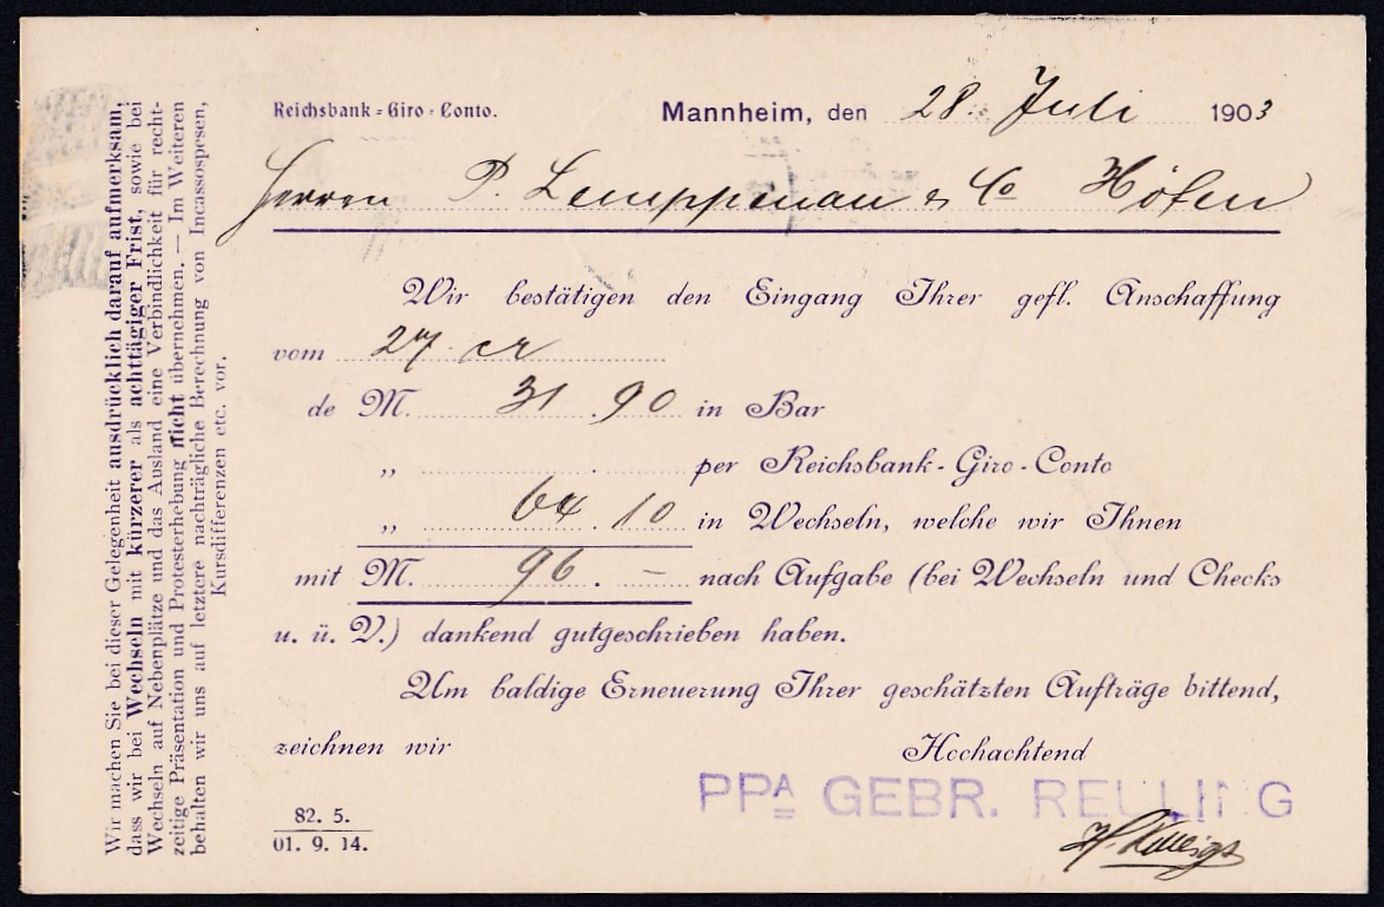 Wir machen Sie bei dieser Gelegenheit ausdrücklich darauf aufmerksam,
dass wir bei Wechseln mit kürzerer als achttägiger Frist, sowie bei
Wechseln auf Nebenplätze und das Ausland eine Verbindlichkeit für recht-
zeitige Präsentation und Protesterhebung nicht übernehmen. — Im Weiteren
behalten wir uns auf letztere nachträgliche Berechnung von Incassospesen,
Kursdifferenzen etc. vor.
Reichsbank-Giro-Conto.
Mannheim, den 28. Juli 1903
Herren P. & Co Höfen
Wir bestätigen den Eingang Ihrer gefl. Anschaffung
vom 27. cr
de M. 31.90 in Bar
„ . per Reichsbank-Giro-Conto
„ 64.10 in Wechseln, welche wir Ihnen
mit M. 96. — nach Aufgabe (bei Wechseln und Checks
u. ü. V.) dankend gutgeschrieben haben.
Um baldige Erneuerung Ihrer geschätzten Aufträge bittend,
zeichnen wir
Hochachtend
PPA GEBR. REULING
82. 5.
01. 9. 14.